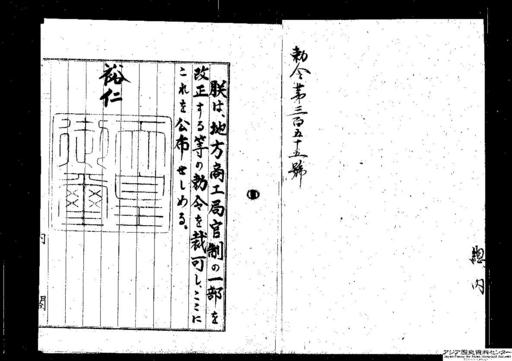 勅令第三百五十五號
總内
朕は、地方商工局官制の一部を
改正する等の勅令を裁可し、ここに
これを公布せしめる。
裕仁
天皇
御璽
内閣
アジア歴史資料センター